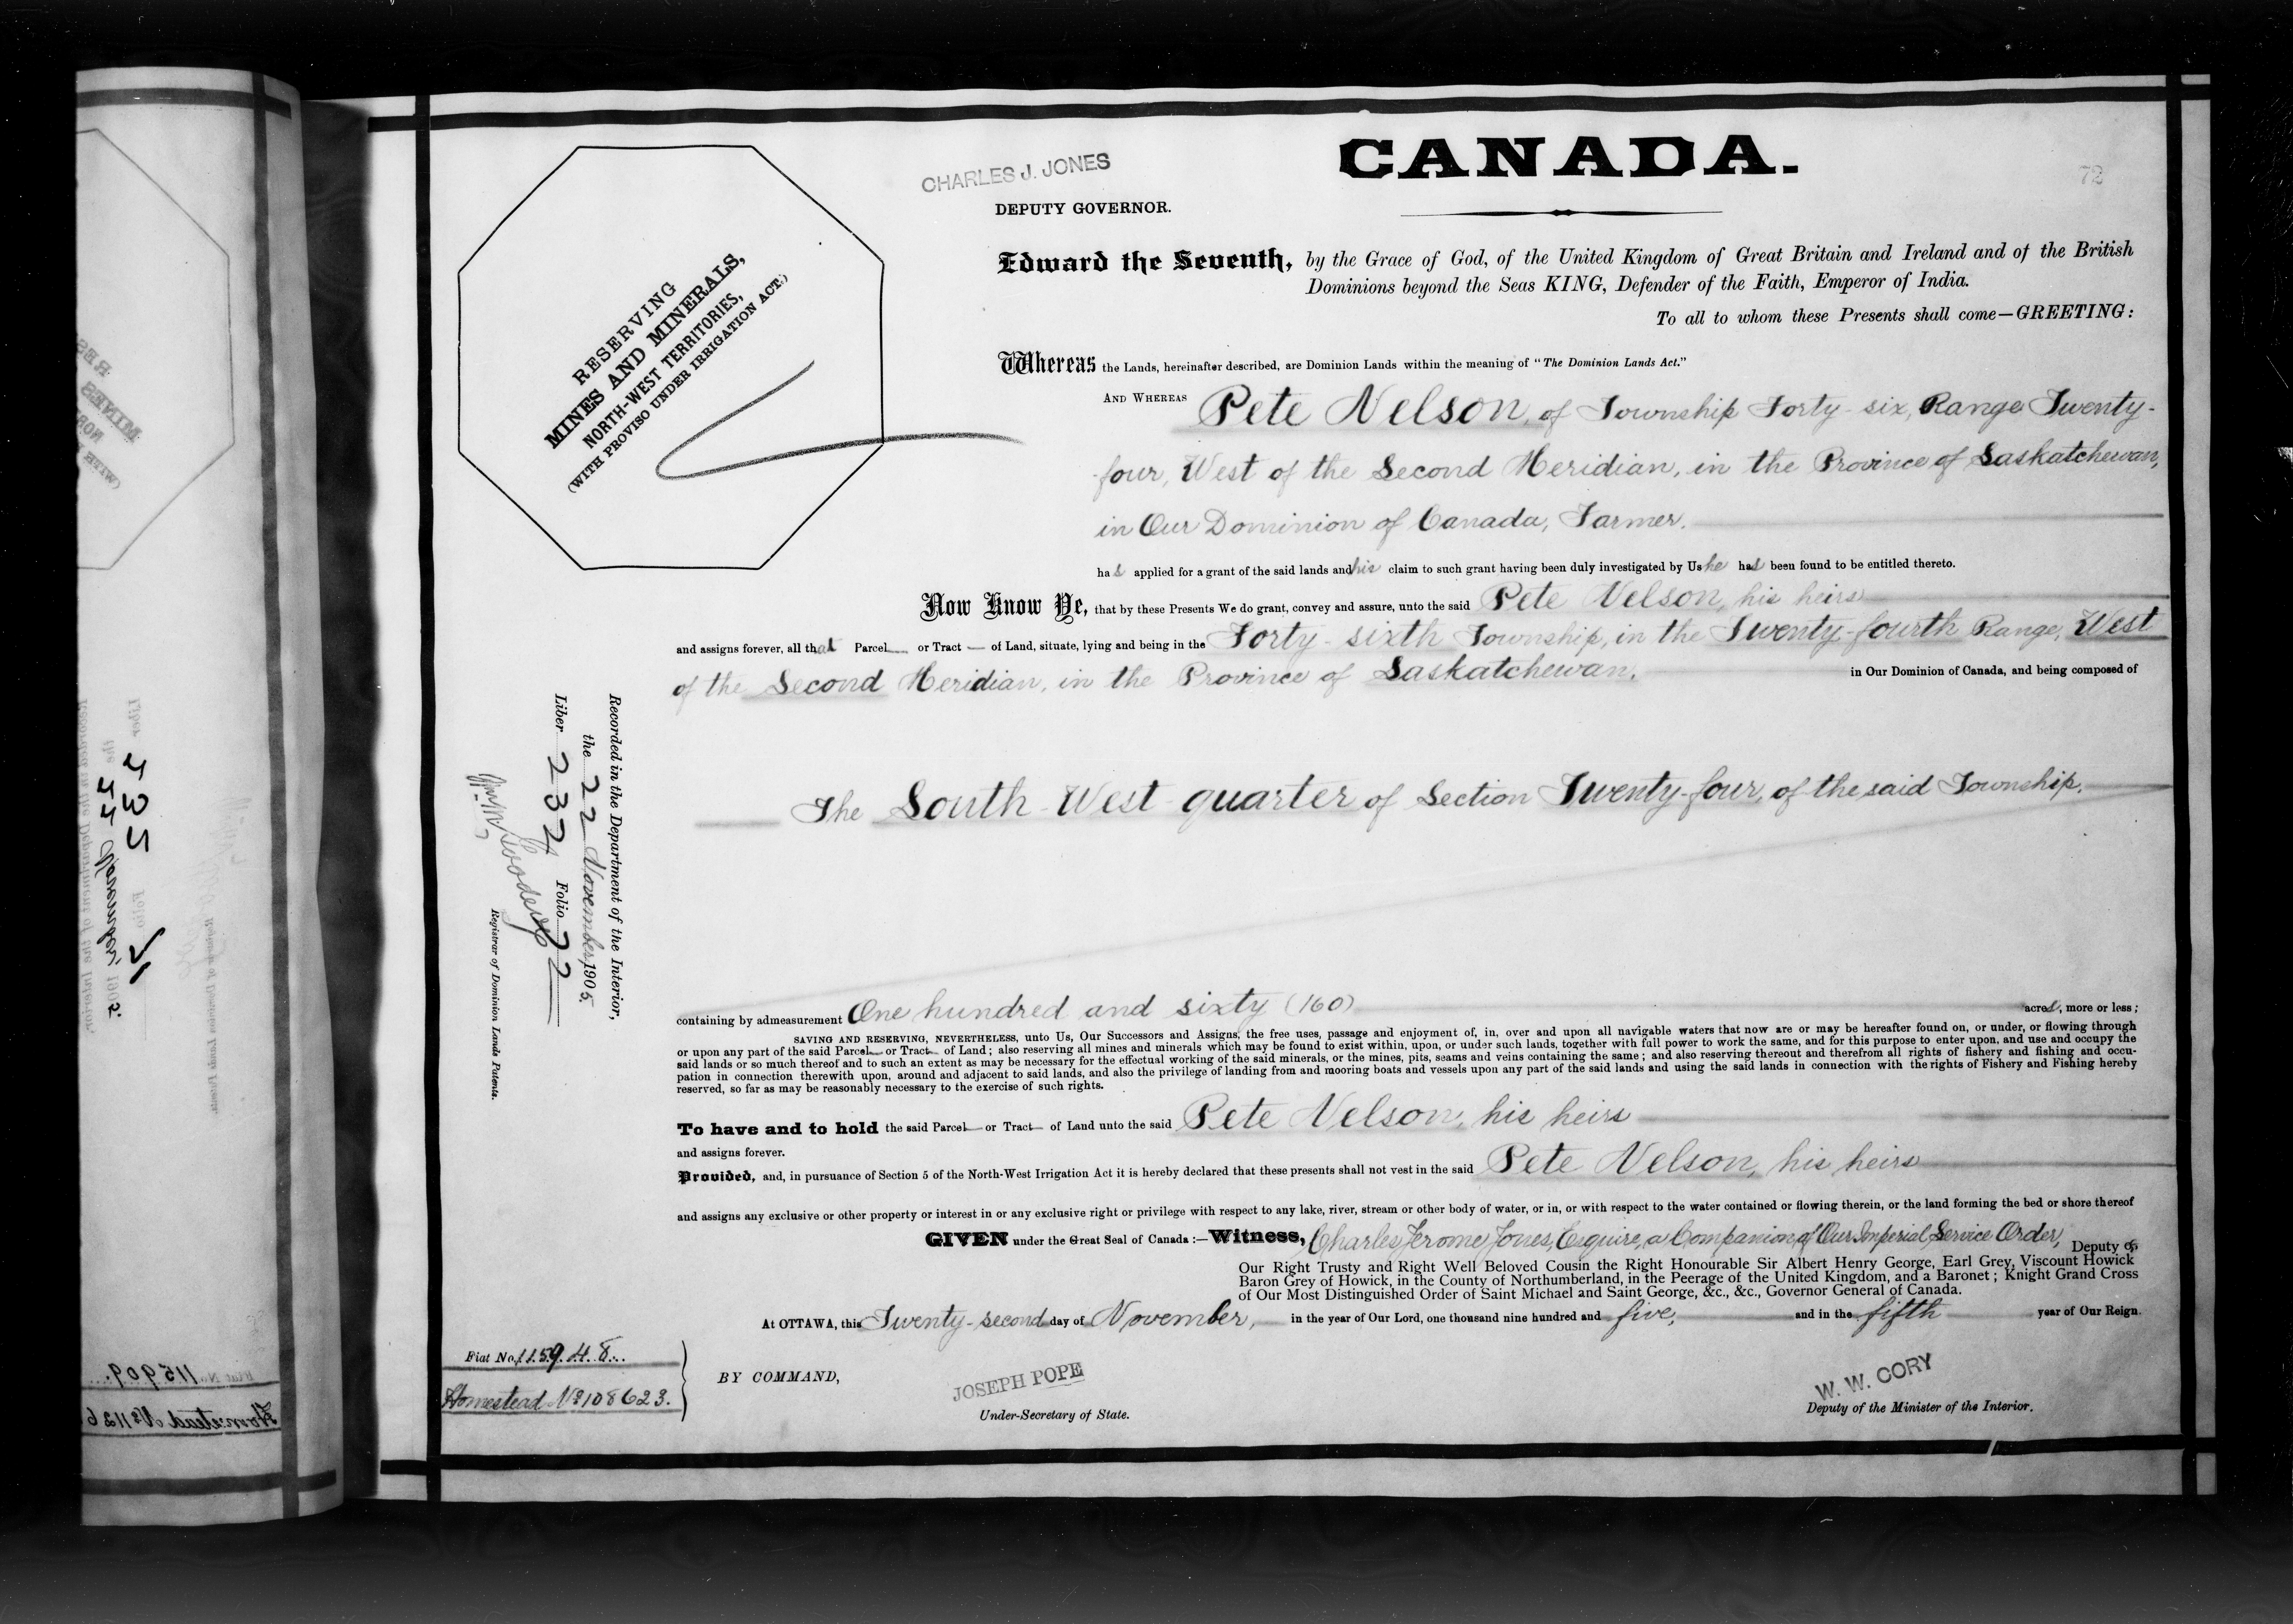 CHARLES J. JONES
DEPUTY GOVERNOR.
CANADA.
72
RESERVING
MINES AND MINERALS,
NORTH-WEST TERRITORIES,
(WITH PROVISO UNDER IRRIGATION ACT.)
Edward the Seventh, by the Grace of God, of the United Kingdom of Great Britain and Ireland and of the British
Dominions beyond the Seas KING, Defender of the Faith, Emperor of India.
To all to whom these Presents shall come—GREETING:
Whereas the Lands, hereinafter described, are Dominion Lands within the meaning of "The Dominion Lands Act."
AND WHEREAS Pete Nelson, of Township Forty-six, Range Twenty-
four, West of the Second Meridian, in the Province of Saskatchewan,
in Our Dominion of Canada, Farmer.
has applied for a grant of the said lands and his claim to such grant having been duly investigated by Us he has been found to be entitled thereto.
Now Know Ye, that by these Presents We do grant, convey and assure, unto the said Pete Nelson, his heirs
and assigns forever, all that Parcel or Tract of Land, situate, lying and being in the Forty-sixth Township, in the Twenty-fourth Range, West
of the Second Meridian, in the Province of Saskatchewan, in Our Dominion of Canada, and being composed of
The South West quarter of Section Twenty-four, of the said Township.
Recorded in the Department of the Interior,
the 22 November, 1905.
Liber 232 Folio 72
Registrar of Dominion Lands Patents.
containing by admeasurement One hundred and sixty (160) acres, more or less;
SAVING AND RESERVING, NEVERTHELESS, unto Us, Our Successors and Assigns, the free uses, passage and enjoyment of, in, over and upon all navigable waters that now are or may be hereafter found on, or under, or flowing through
or upon any part of the said Parcel or Tract of Land; also reserving all mines and minerals which may be found to exist within, upon, or under such lands, together with full power to work the same, and for this purpose to enter upon, and use and occupy the
said lands or so much thereof and to such an extent as may be necessary for the effectual working of the said minerals, or the mines, pits, seams and veins containing the same; and also reserving thereout and therefrom all rights of fishery and fishing and occu-
pation in connection therewith upon, around and adjacent to said lands, and also the privilege of landing from and mooring boats and vessels upon any part of the said lands and using the said lands in connection with the rights of Fishery and Fishing hereby
reserved, so far as may be reasonably necessary to the exercise of such rights.
To have and to hold the said Parcel or Tract of Land unto the said Pete Nelson, his heirs
and assigns forever.
Provided, and, in pursuance of Section 5 of the North-West Irrigation Act it is hereby declared that these presents shall not vest in the said Pete Nelson, his heirs
and assigns any exclusive or other property or interest in or any exclusive right or privilege with respect to any lake, river, stream or other body of water, or in, or with respect to the water contained or flowing therein, or the land forming the bed or shore thereof
GIVEN under the Great Seal of Canada:—Witness, Charles Jerome Jones, Esquire, a Companion of Our Imperial Service Order, Deputy of
Our Right Trusty and Right Well Beloved Cousin the Right Honourable Sir Albert Henry George, Earl Grey, Viscount Howick
Baron Grey of Howick, in the County of Northumberland, in the Peerage of the United Kingdom, and a Baronet; Knight Grand Cross
of Our Most Distinguished Order of Saint Michael and Saint George, &c., &c., Governor General of Canada.
At OTTAWA, this Twenty-second day of November, in the year of Our Lord, one thousand nine hundred and five, and in the fifth year of Our Reign.
Fiat No. 115948
Homestead No 108623.
BY COMMAND,
JOSEPH POPE
Under-Secretary of State.
W. W. CORY
Deputy of the Minister of the Interior.